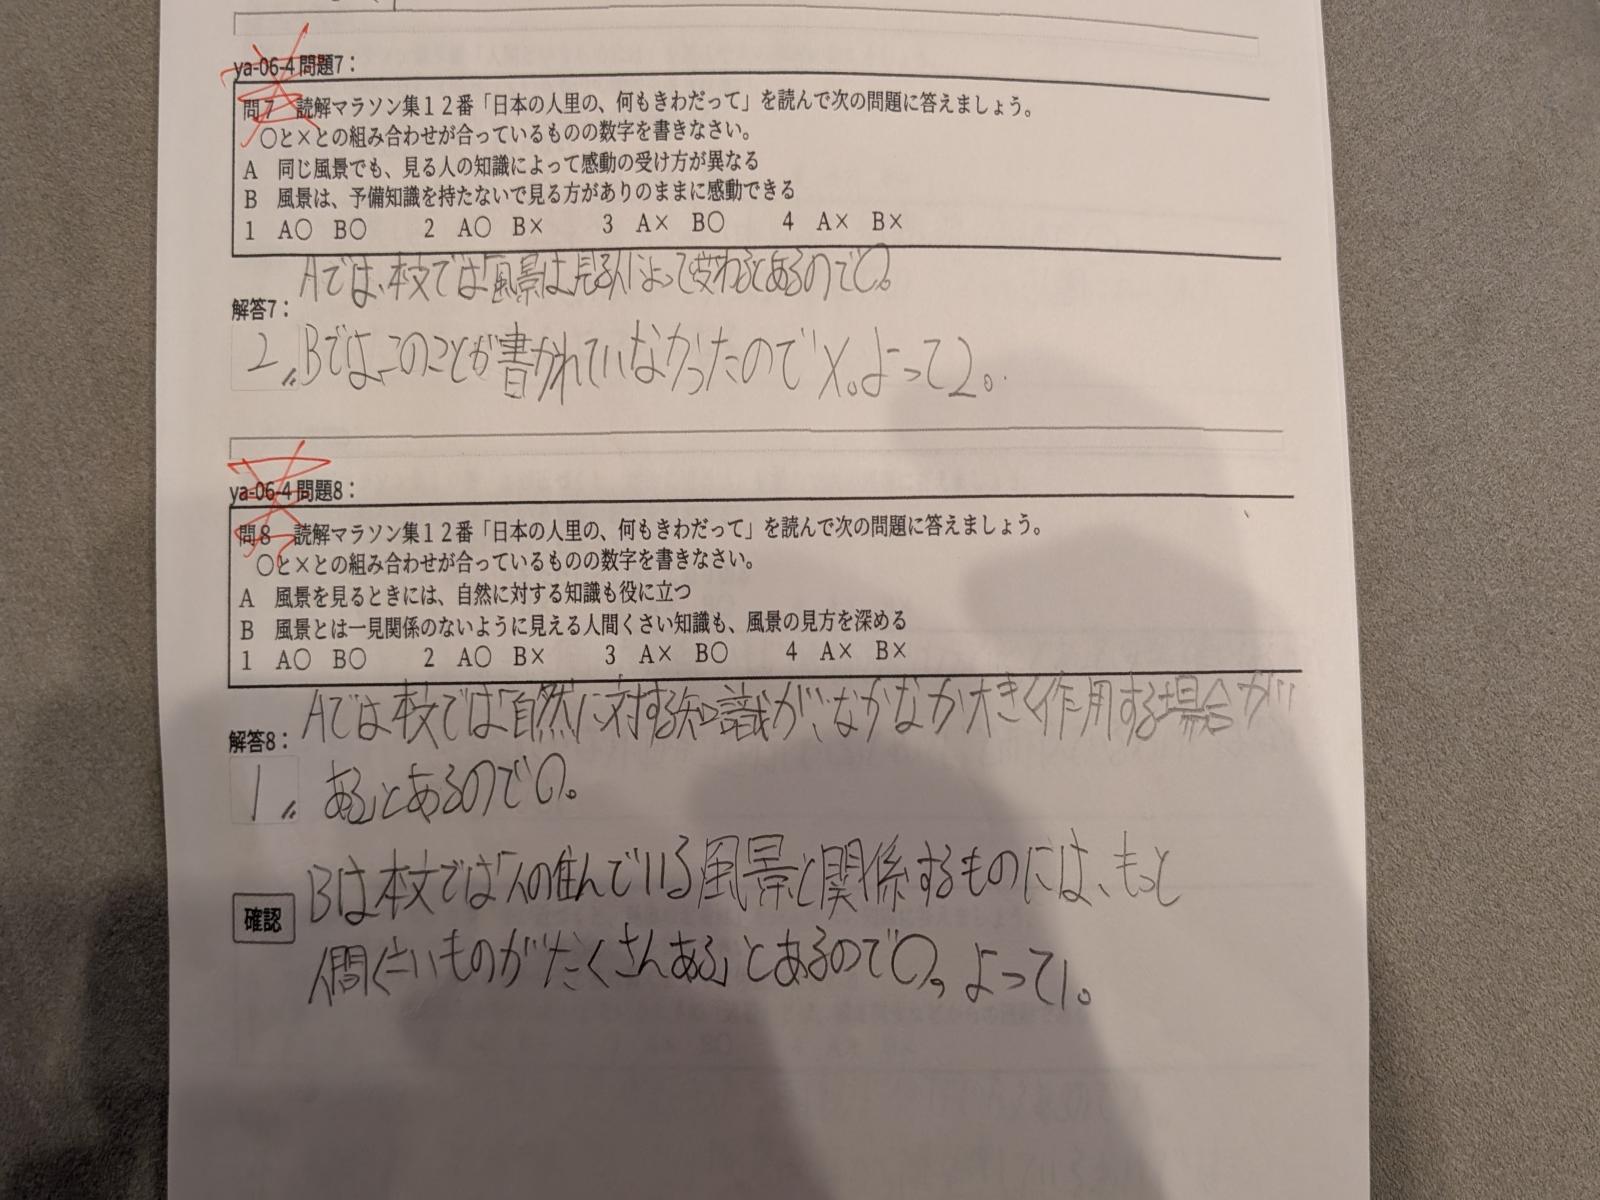 ya-06-4 問題7:
問7 読解マラソン集12番「日本の人里の、何もきわだって」を読んで次の問題に答えましょう。
○と×との組み合わせが合っているものの数字を書きなさい。
A 同じ風景でも、見る人の知識によって感動の受け方が異なる
B 風景は、予備知識を持たないで見る方がありのままに感動できる
1 A○ B○ 2 A○ B× 3 A× B○ 4 A× B×
Aでは、本文では「風景は見る人によって変わるとあるので○。
解答7:
2 Bでは、このことが書かれていなかったので×。よって2。
ya-06-4 問題8:
問8 読解マラソン集12番「日本の人里の、何もきわだって」を読んで次の問題に答えましょう。
○と×との組み合わせが合っているものの数字を書きなさい。
A 風景を見るときには、自然に対する知識も役に立つ
B 風景とは一見関係のないように見える人間くさい知識も、風景の見方を深める
1 A○ B○ 2 A○ B× 3 A× B○ 4 A× B×
Aでは本文では「自然に対する知識が、なかなか大きく作用する場合が
解答8:
1 ある」とあるので○。
Bは本文では「人の住んでいる風景と関係するものには、もっと
確認
人間くさいものがたくさんある」とあるので○。よって1。